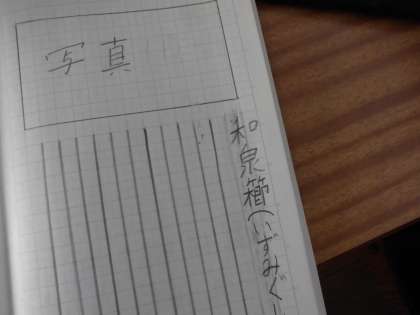 写真
和泉箍(いずみぐし